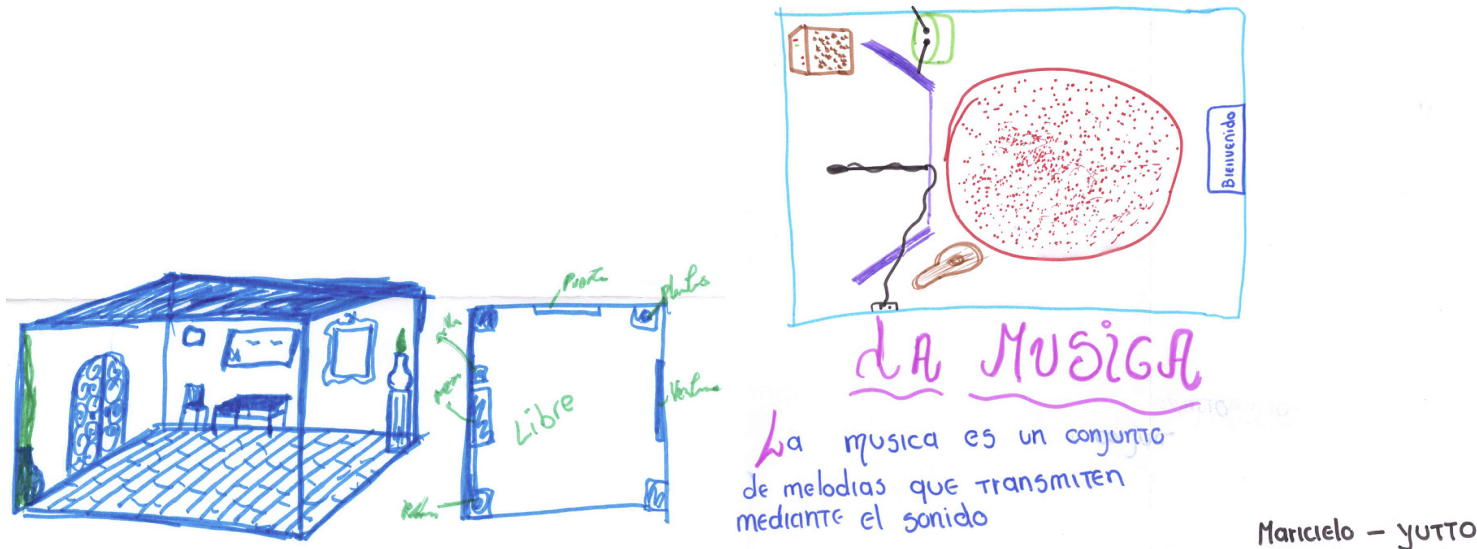 Puerta
plantas
silla
mesa
Libre
Ventana
Bienvenido
LA MUSICA
La musica es un conjunto
de melodias que transmiten
mediante el sonido
Maricielo - YUTTO